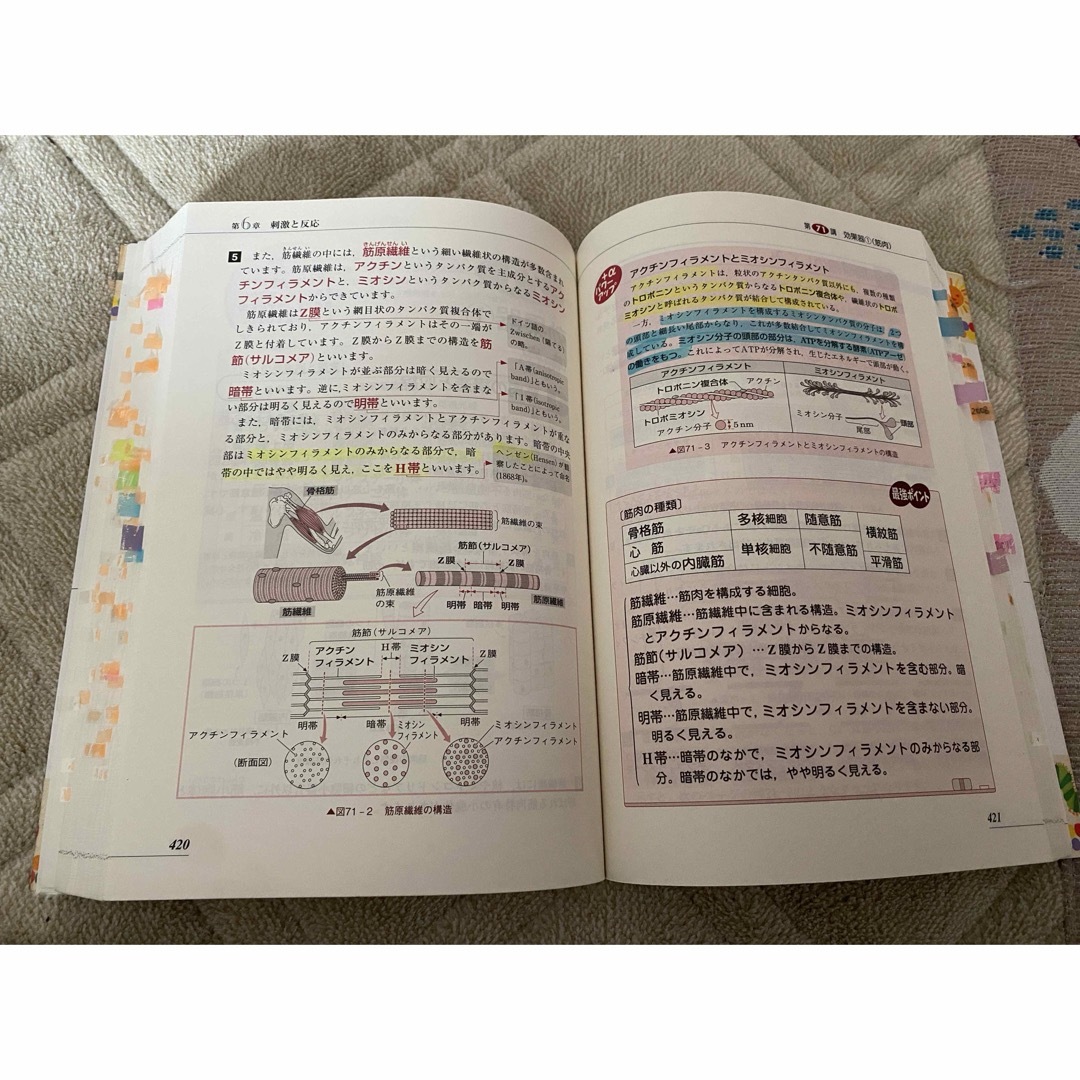 第6章 刺激と反応
5 また，筋繊維の中には，筋原繊維という細い繊維状の構造が多数含まれ
きんせんい
きんげんせんい
ています。筋原繊維は，アクチンというタンパク質を主成分とするアク
チンフィラメントと，ミオシンというタンパク質からなるミオシン
フィラメントからできています。
筋原繊維はZ膜という網目状のタンパク質複合体で
しきられており，アクチンフィラメントはその一端が
Z膜と付着しています。Z膜からZ膜までの構造を筋
節(サルコメア)といいます。
ドイツ語の
Zwischen（隔てる）
の略。
ミオシンフィラメントが並ぶ部分は暗く見えるので
暗帯といいます。逆に，ミオシンフィラメントを含まな
い部分は明るく見えるので明帯といいます。
「A帯(anisotropic
band)」ともいう。
「I帯(isotropic
band)」ともいう。
また，暗帯には，ミオシンフィラメントとアクチンフィラメントが重な
る部分と，ミオシンフィラメントのみからなる部分があります。暗帯の中央
部はミオシンフィラメントのみからなる部分で，暗
帯の中ではやや明るく見え，ここをH帯といいます。
ヘンゼン(Hensen)が観
察したことによって命名
(1868年)。
骨格筋
筋繊維の束
筋節(サルコメア)
Z膜
Z膜
筋繊維
筋原繊維
の束
明帯 暗帯 明帯
筋原繊維
筋節(サルコメア)
Z膜
アクチン
フィラメント
H帯
ミオシン
フィラメント
Z膜
明帯
暗帯
明帯
アクチンフィラメント
ミオシン
フィラメント
ミオシンフィラメント
アクチンフィラメント
(断面図)
▲図71-2 筋原繊維の構造
420
第71講 効果器①(筋肉)
+α
パワー
アップ
アクチンフィラメントとミオシンフィラメント
アクチンフィラメントは，粒状のアクチンタンパク質以外にも，複数の種類
のトロポニンというタンパク質からなるトロポニン複合体や，繊維状のトロポ
ミオシンと呼ばれるタンパク質が結合して構成されている。
一方，ミオシンフィラメントを構成するミオシンタンパク質の分子は，2つ
の頭部と細長い尾部からなり，これが多数結合してミオシンフィラメントを構
成している。ミオシン分子の頭部の部分は，ATPを分解する酵素(ATPアーゼ
の働きをもつ。これによってATPが分解され，生じたエネルギーで頭部が動く。
アクチンフィラメント
ミオシンフィラメント
トロポニン複合体
アクチン
トロポミオシン
アクチン分子
5nm
ミオシン分子
尾部
頭部
▲図71-3 アクチンフィラメントとミオシンフィラメントの構造
最強ポイント
〔筋肉の種類〕
骨格筋 多核細胞 随意筋 横紋筋
心筋 単核細胞 不随意筋
心臓以外の内臓筋 平滑筋
筋繊維…筋肉を構成する細胞。
筋原繊維…筋繊維中に含まれる構造。ミオシンフィラメント
とアクチンフィラメントからなる。
筋節(サルコメア)…Z膜からZ膜までの構造。
暗帯…筋原繊維中で，ミオシンフィラメントを含む部分。暗
く見える。
明帯…筋原繊維中で，ミオシンフィラメントを含まない部分。
明るく見える。
H帯…暗帯のなかで，ミオシンフィラメントのみからなる部
分。暗帯のなかでは，やや明るく見える。
421